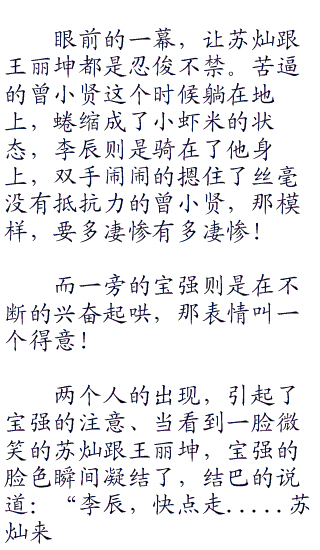 眼前的一幕，让苏灿跟
王丽坤都是忍俊不禁。苦逼
的曾小贤这个时候躺在地
上，蜷缩成了小虾米的状
态，李辰则是骑在了他身
上，双手闹闹的摁住了丝毫
没有抵抗力的曾小贤，那模
样，要多凄惨有多凄惨！
而一旁的宝强则是在不
断的兴奋起哄，那表情叫一
个得意！
两个人的出现，引起了
宝强的注意、当看到一脸微
笑的苏灿跟王丽坤，宝强的
脸色瞬间凝结了，结巴的说
道：“李辰，快点走.....苏
灿来